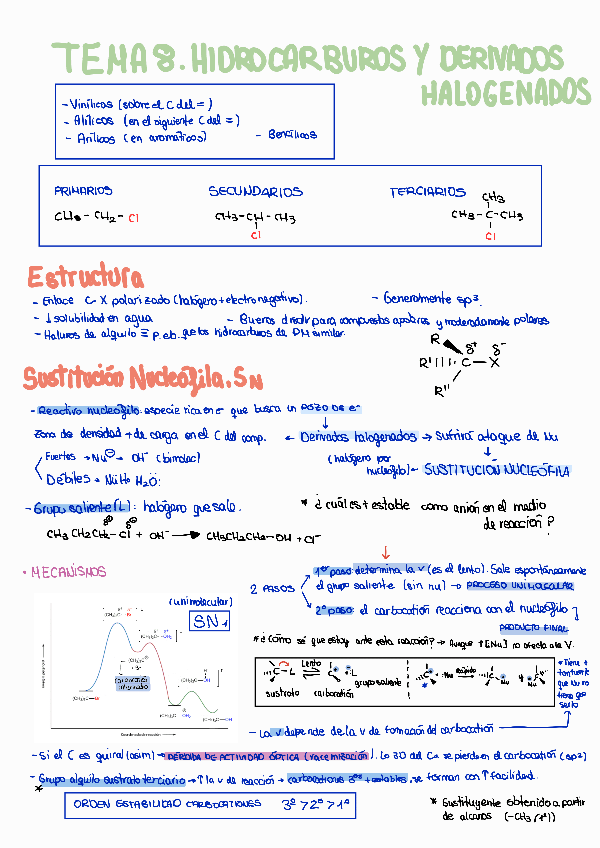 TEMA 8. HIDROCARBUROS Y DERIVADOS
HALOGENADOS
- Vinílicos (sobre el C del =)
- Alílicos (en el siguiente C del =)
- Arílicos (en aromáticos) - Bencílicos
PRIMARIOS SECUNDARIOS TERCIARIOS
CH3
CH3 - CH2 - Cl CH3 - CH - CH3 CH3 - C - CH3
Cl Cl
Estructura
- Enlace C-X polarizado (halógeno + electronegativo). - Generalmente sp3.
- ↓ solubilidad en agua - Buenos disolv para compuestos apolares y moderadamente polares
- Haluros de alquilo ≡ p.eb. que los hidrocarburos de PM similar.
R δ+ δ-
R' C - X
R''
Sustitución Nucleófila. SN
- Reactivo nucleófilo: especie rica en e- que busca un POZO DE e-
Zona de densidad + de carga en el C del comp. ← Derivados halogenados → Sufrirá ataque de Nu
Fuertes → Nu⊖ → OH- (bimolec) (halógeno por
nucleófilo) ← SUSTITUCIÓN NUCLEÓFILA
Débiles → NH3 H2O:
- Grupo saliente (L): halógeno que sale. * ¿cuál es + estable como anión en el medio
de reacción?
δ+ δ-
CH3 CH2 CH2 - Cl + OH- → CH3CH2CH2 - OH + Cl-
· MECANISMOS
1er paso: determina la v (es el lento). Sale espontáneamente
2 PASOS el grupo saliente (sin nu) → PROCESO UNIMOLECULAR
2º paso: el carbocatión reacciona con el nucleófilo
PRODUCTO FINAL
(unimolecular)
SN1
* ¿Cómo sé que estoy ante esta reacción? → Aunque ↑[Nu] no afecta a la V.
Lento Rápido
C - L C+ :L :Nu Nu y Nu
grupo saliente
sustrato carbocatión
carbocatión
intermedio
- La v depende de la v de formación del carbocatión
- Si el C es quiral (asim) → PÉRDIDA DE ACTIVIDAD ÓPTICA (racemización). La 3D del C se pierde en el carbocatión (sp2)
- Grupo alquilo sustrato terciario → ↑ la v de reacción → carbocationes 3os + estables, se forman con ↑ facilidad.
*
ORDEN ESTABILIDAD CARBOCATIONES 3º > 2º > 1º
* Sustituyente obtenido a partir
de alcanos (-CH3 / 1H)